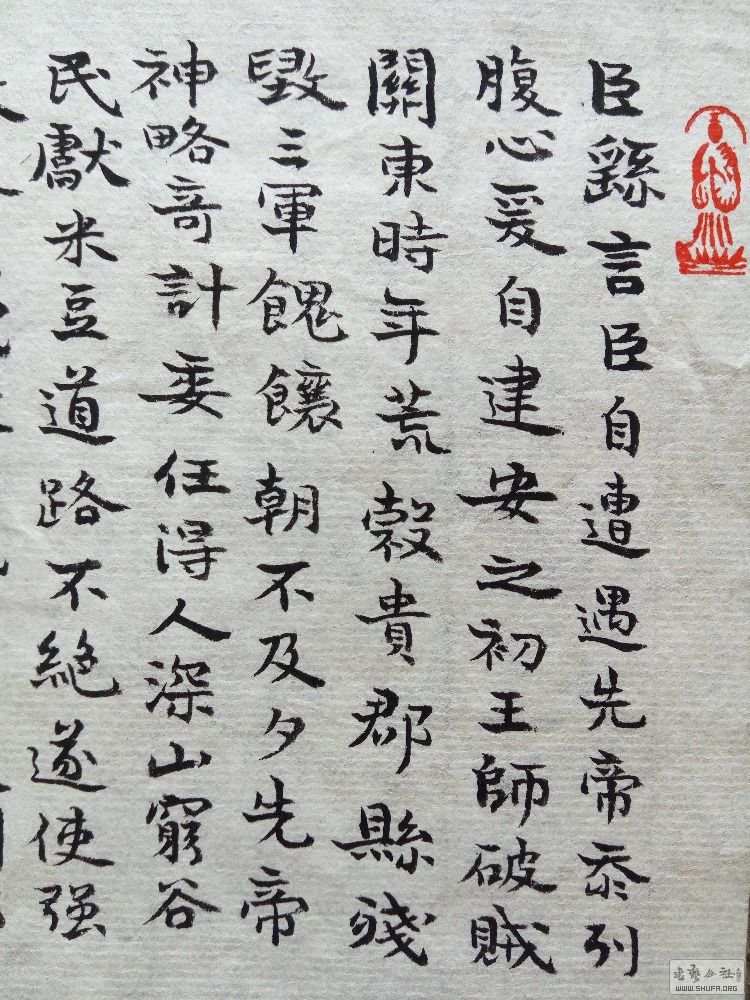 臣繇言臣自遭遇先帝忝列
腹心爰自建安之初王師破賊
關東時年荒穀貴郡縣殘
毀三軍餽饟朝不及夕先帝
神略奇計委任得人深山窮谷
民獻米豆道路不絕遂使强
WWW.SHUFA.ORG